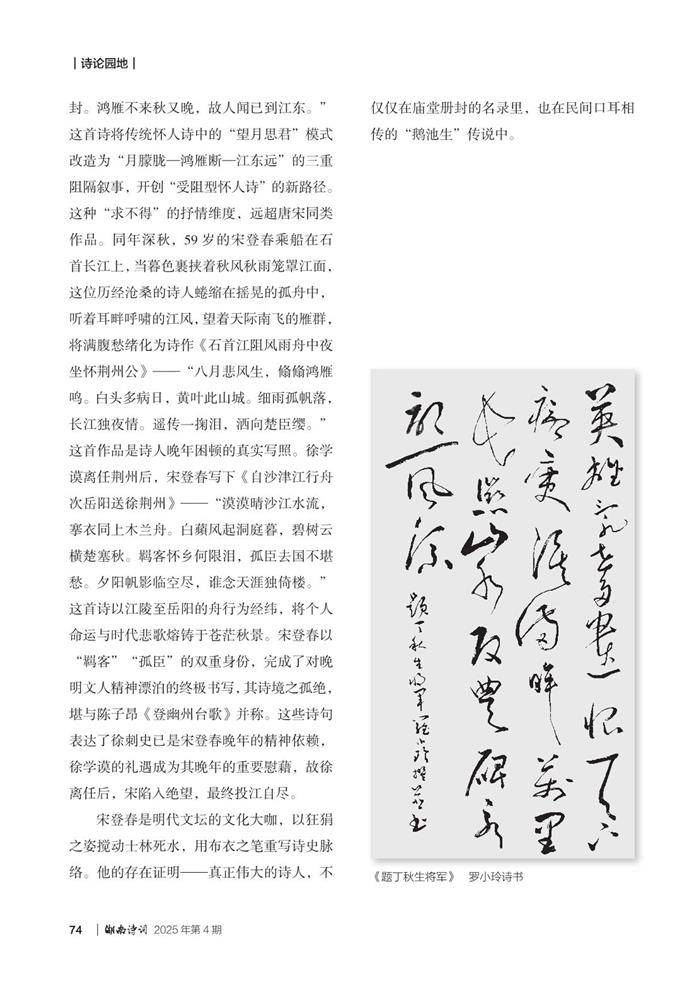 诗论园地
封。鸿雁不来秋又晚，故人闻已到江东。”
这首诗将传统怀人诗中的“望月思君”模式
改造为“月朦胧—鸿雁断—江东远”的三重
阻隔叙事，开创“受阻型怀人诗”的新路径。
这种“求不得”的抒情维度，远超唐宋同类
作品。同年深秋，59 岁的宋登春乘船在石
首长江上，当暮色裹挟着秋风秋雨笼罩江面，
这位历经沧桑的诗人蜷缩在摇晃的孤舟中，
听着耳畔呼啸的江风，望着天际南飞的雁群，
将满腹愁绪化为诗作《石首江阻风雨舟中夜
坐怀荆州公》——“八月悲风生，翛翛鸿雁
鸣。白头多病日，黄叶此山城。细雨孤帆落，
长江独夜情。遥传一掬泪，洒向楚臣缨。”
这首作品是诗人晚年困顿的真实写照。徐学
谟离任荆州后，宋登春写下《自沙津江行舟
次岳阳送徐荆州》——“漠漠晴沙江水流，
搴衣同上木兰舟。白蘋风起洞庭暮，碧树云
横楚塞秋。羁客怀乡何限泪，孤臣去国不堪
愁。夕阳帆影临空尽，谁念天涯独倚楼。”
这首诗以江陵至岳阳的舟行为经纬，将个人
命运与时代悲歌熔铸于苍茫秋景。宋登春以
“羁客”“孤臣”的双重身份，完成了对晚
明文人精神漂泊的终极书写，其诗境之孤绝，
堪与陈子昂《登幽州台歌》并称。这些诗句
表达了徐刺史已是宋登春晚年的精神依赖，
徐学谟的礼遇成为其晚年的重要慰藉，故徐
离任后，宋陷入绝望，最终投江自尽。
宋登春是明代文坛的文化大咖，以狂狷
之姿搅动士林死水，用布衣之笔重写诗史脉
络。他的存在证明——真正伟大的诗人，不
仅仅在庙堂册封的名录里，也在民间口耳相
传的“鹅池生”传说中。
英雄气
万里
山水
碑
风
题丁秋生将军 罗小玲撰并书
《题丁秋生将军》 罗小玲诗书
74 湖南诗词 2025 年第 4 期